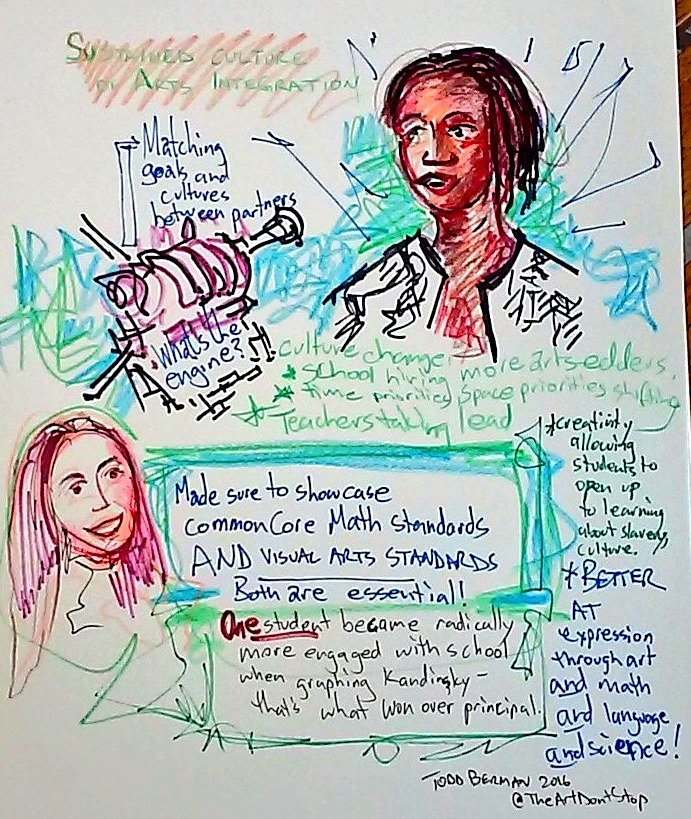 Sustained culture
of Arts Integration
Matching
goals and
cultures
between partners
What's the
engine?
Culture change: more arts-edders.
* school hiring
* time priorities, space priorities shifting
* Teachers taking lead
Made sure to showcase
Common Core Math standards
AND VISUAL ARTS STANDARDS
Both are essential!
One student became radically
more engaged with school
when graphing Kandinsky –
that's what won over principal.
*creativity
allowing
students to
open up
to learning
about slavery,
culture.
*BETTER
AT
expression
through art
and math
and language
and science!
TODD BERMAN 2016
@TheArtDontStop